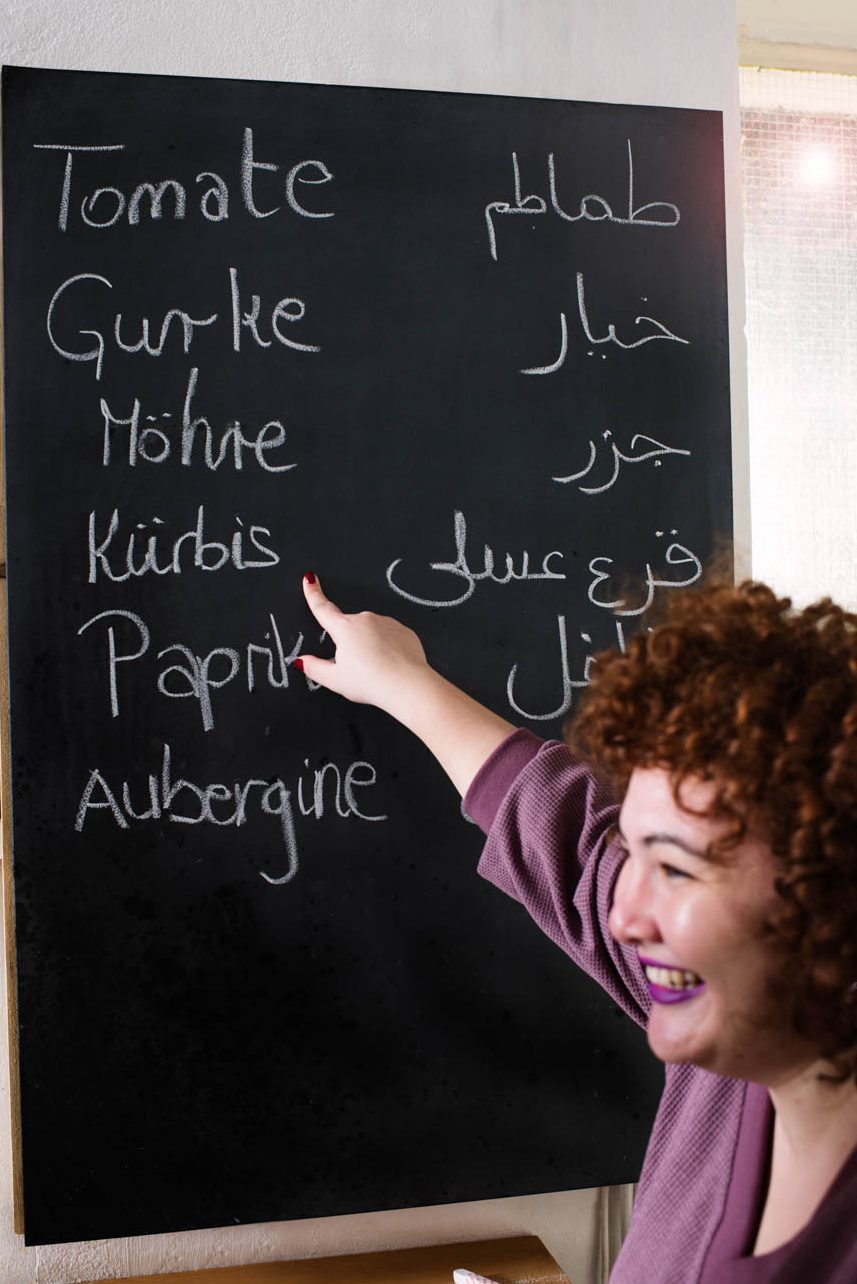 Tomate طماطم
Gurke خيار
Möhre جزر
Kürbis قرع عسلى
Aubergine